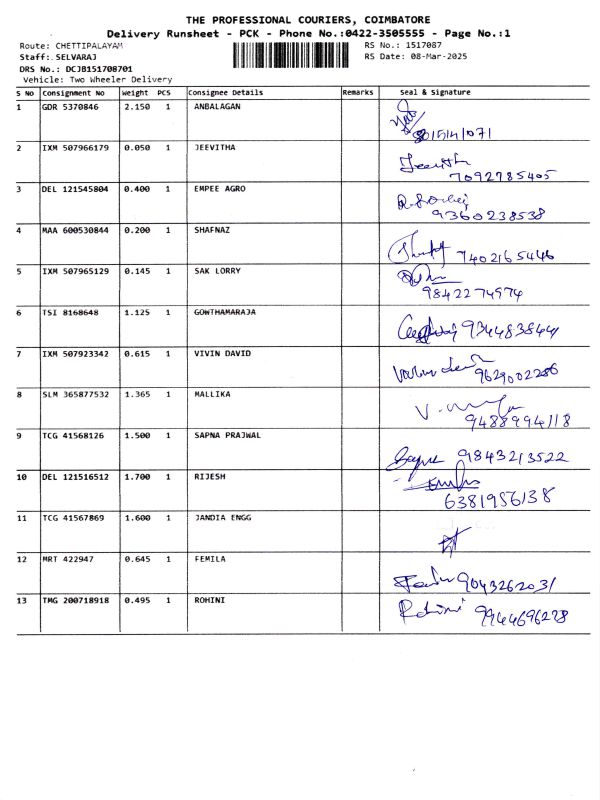 THE PROFESSIONAL COURIERS, COIMBATORE
Delivery Runsheet - PCK - Phone No.:0422-3505555 - Page No.:1
Route: CHETTIPALAYAM RS No.: 1517087
Staff: SELVARAJ RS Date: 08-Mar-2025
DRS No.: DCJB151708701
Vehicle: Two Wheeler Delivery
S No Consignment No Weight PCS Consignee Details Remarks Seal & Signature
1 GDR 5370846 2.150 1 ANBALAGAN
2 IXM 507966179 0.050 1 JEEVITHA Jeevitha
7092785405
3 DEL 121545804 0.400 1 EMPEE AGRO
9360238538
4 MAA 600530844 0.200 1 SHAFNAZ 7402165446
5 IXM 507965129 0.145 1 SAK LORRY
9842274974
6 TSI 8168648 1.125 1 GOWTHAMARAJA 934483844
7 IXM 507923342 0.615 1 VIVIN DAVID
9629002286
8 SLM 365877532 1.365 1 MALLIKA
9488994118
9 TCG 41568126 1.500 1 SAPNA PRAJWAL Sapna 9843213522
10 DEL 121516512 1.700 1 RIJESH
6381956138
11 TCG 41567869 1.600 1 JANDIA ENGG
12 MRT 422947 0.645 1 FEMILA 9043262031
13 TMG 200718918 0.495 1 ROHINI Rohini 9944696278